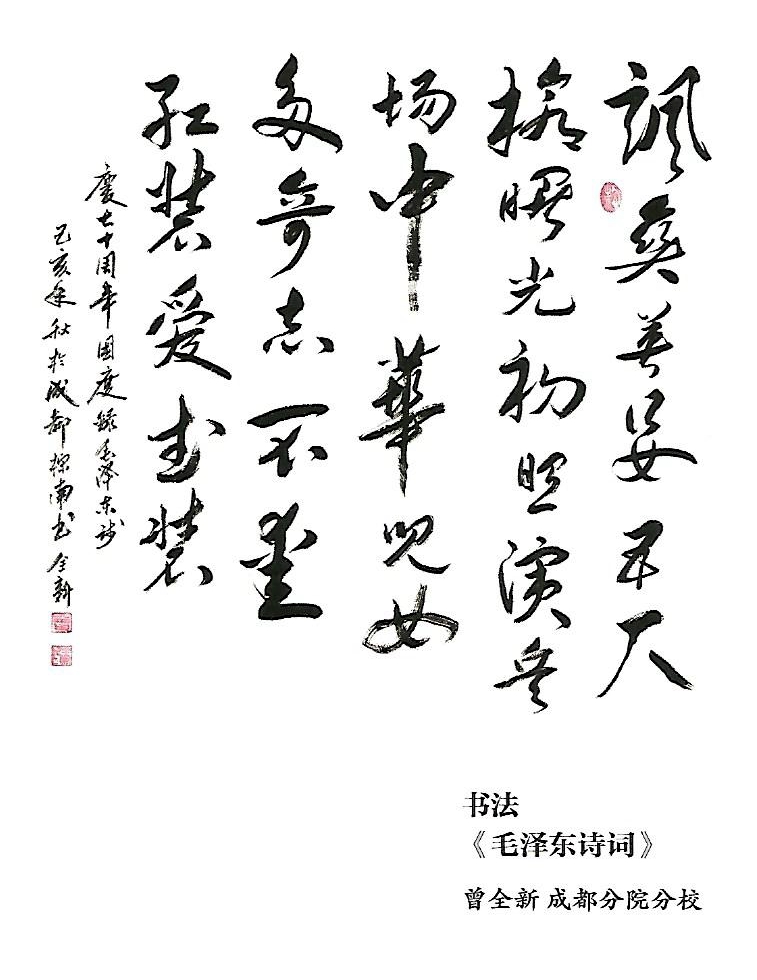 飒爽英姿五尺
枪曙光初照演兵
场中華儿女
多奇志不爱
红装爱武装
慶七十周年国慶录毛泽东诗
己亥年秋於成都探南书全新
书法
《毛泽东诗词》
曾全新 成都分院分校